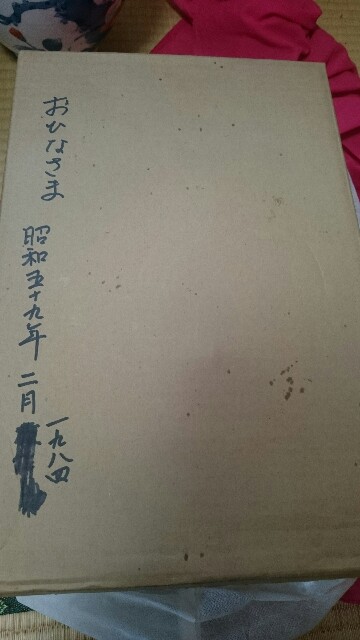 おひなさま
昭和五十九年 二月
一九八四